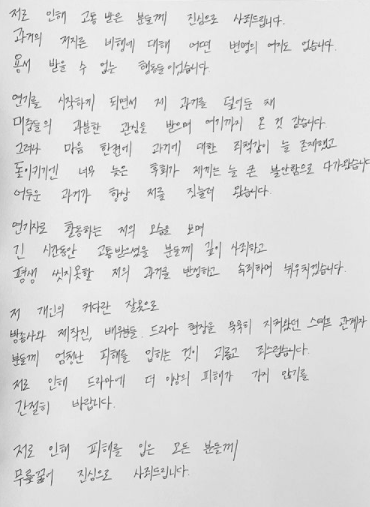 저로 인해 고통 받은 분들께 진심으로 사죄드립니다.
과거의 저지른 비행에 대해 어떤 변명의 여지도 없습니다.
용서 받을 수 없는 행동들이었습니다.
연기를 시작하게 되면서 제 과거를 덮어둔 채
대중들의 과분한 관심을 받으며 여기까지 온 것 같습니다.
그러나 마음 한편에 과거에 대한 죄책감이 늘 존재했고
돌이키기엔 너무 늦은 후회가 저에게는 늘 큰 불안함으로 다가왔습니다.
어두운 과거가 항상 저를 짓눌러 왔습니다.
연기자로 활동하는 저의 모습을 보며
긴 시간동안 고통받으셨을 분들께 깊이 사죄하고
평생 씻지못할 저의 과거를 반성하고 속죄하며 뉘우치겠습니다.
저 개인의 커다란 잘못으로
방송사와 제작진, 배우들, 드라마 현장을 묵묵히 지켜왔던 스태프 관계자
분들께 엄청난 피해를 입히는 것이 괴롭고 죄스럽습니다.
저로 인해 드라마에 더 이상의 피해가 가지 않기를
간절히 바랍니다.
저로 인해 피해를 입은 모든 분들께
무릎꿇어 진심으로 사죄드립니다.